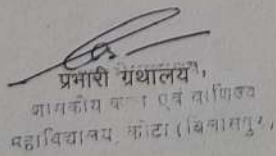 प्रभारी ग्रंथालय,
शासकीय कला एवं वाणिज्य
महाविद्यालय, कोटा (बिलासपुर)